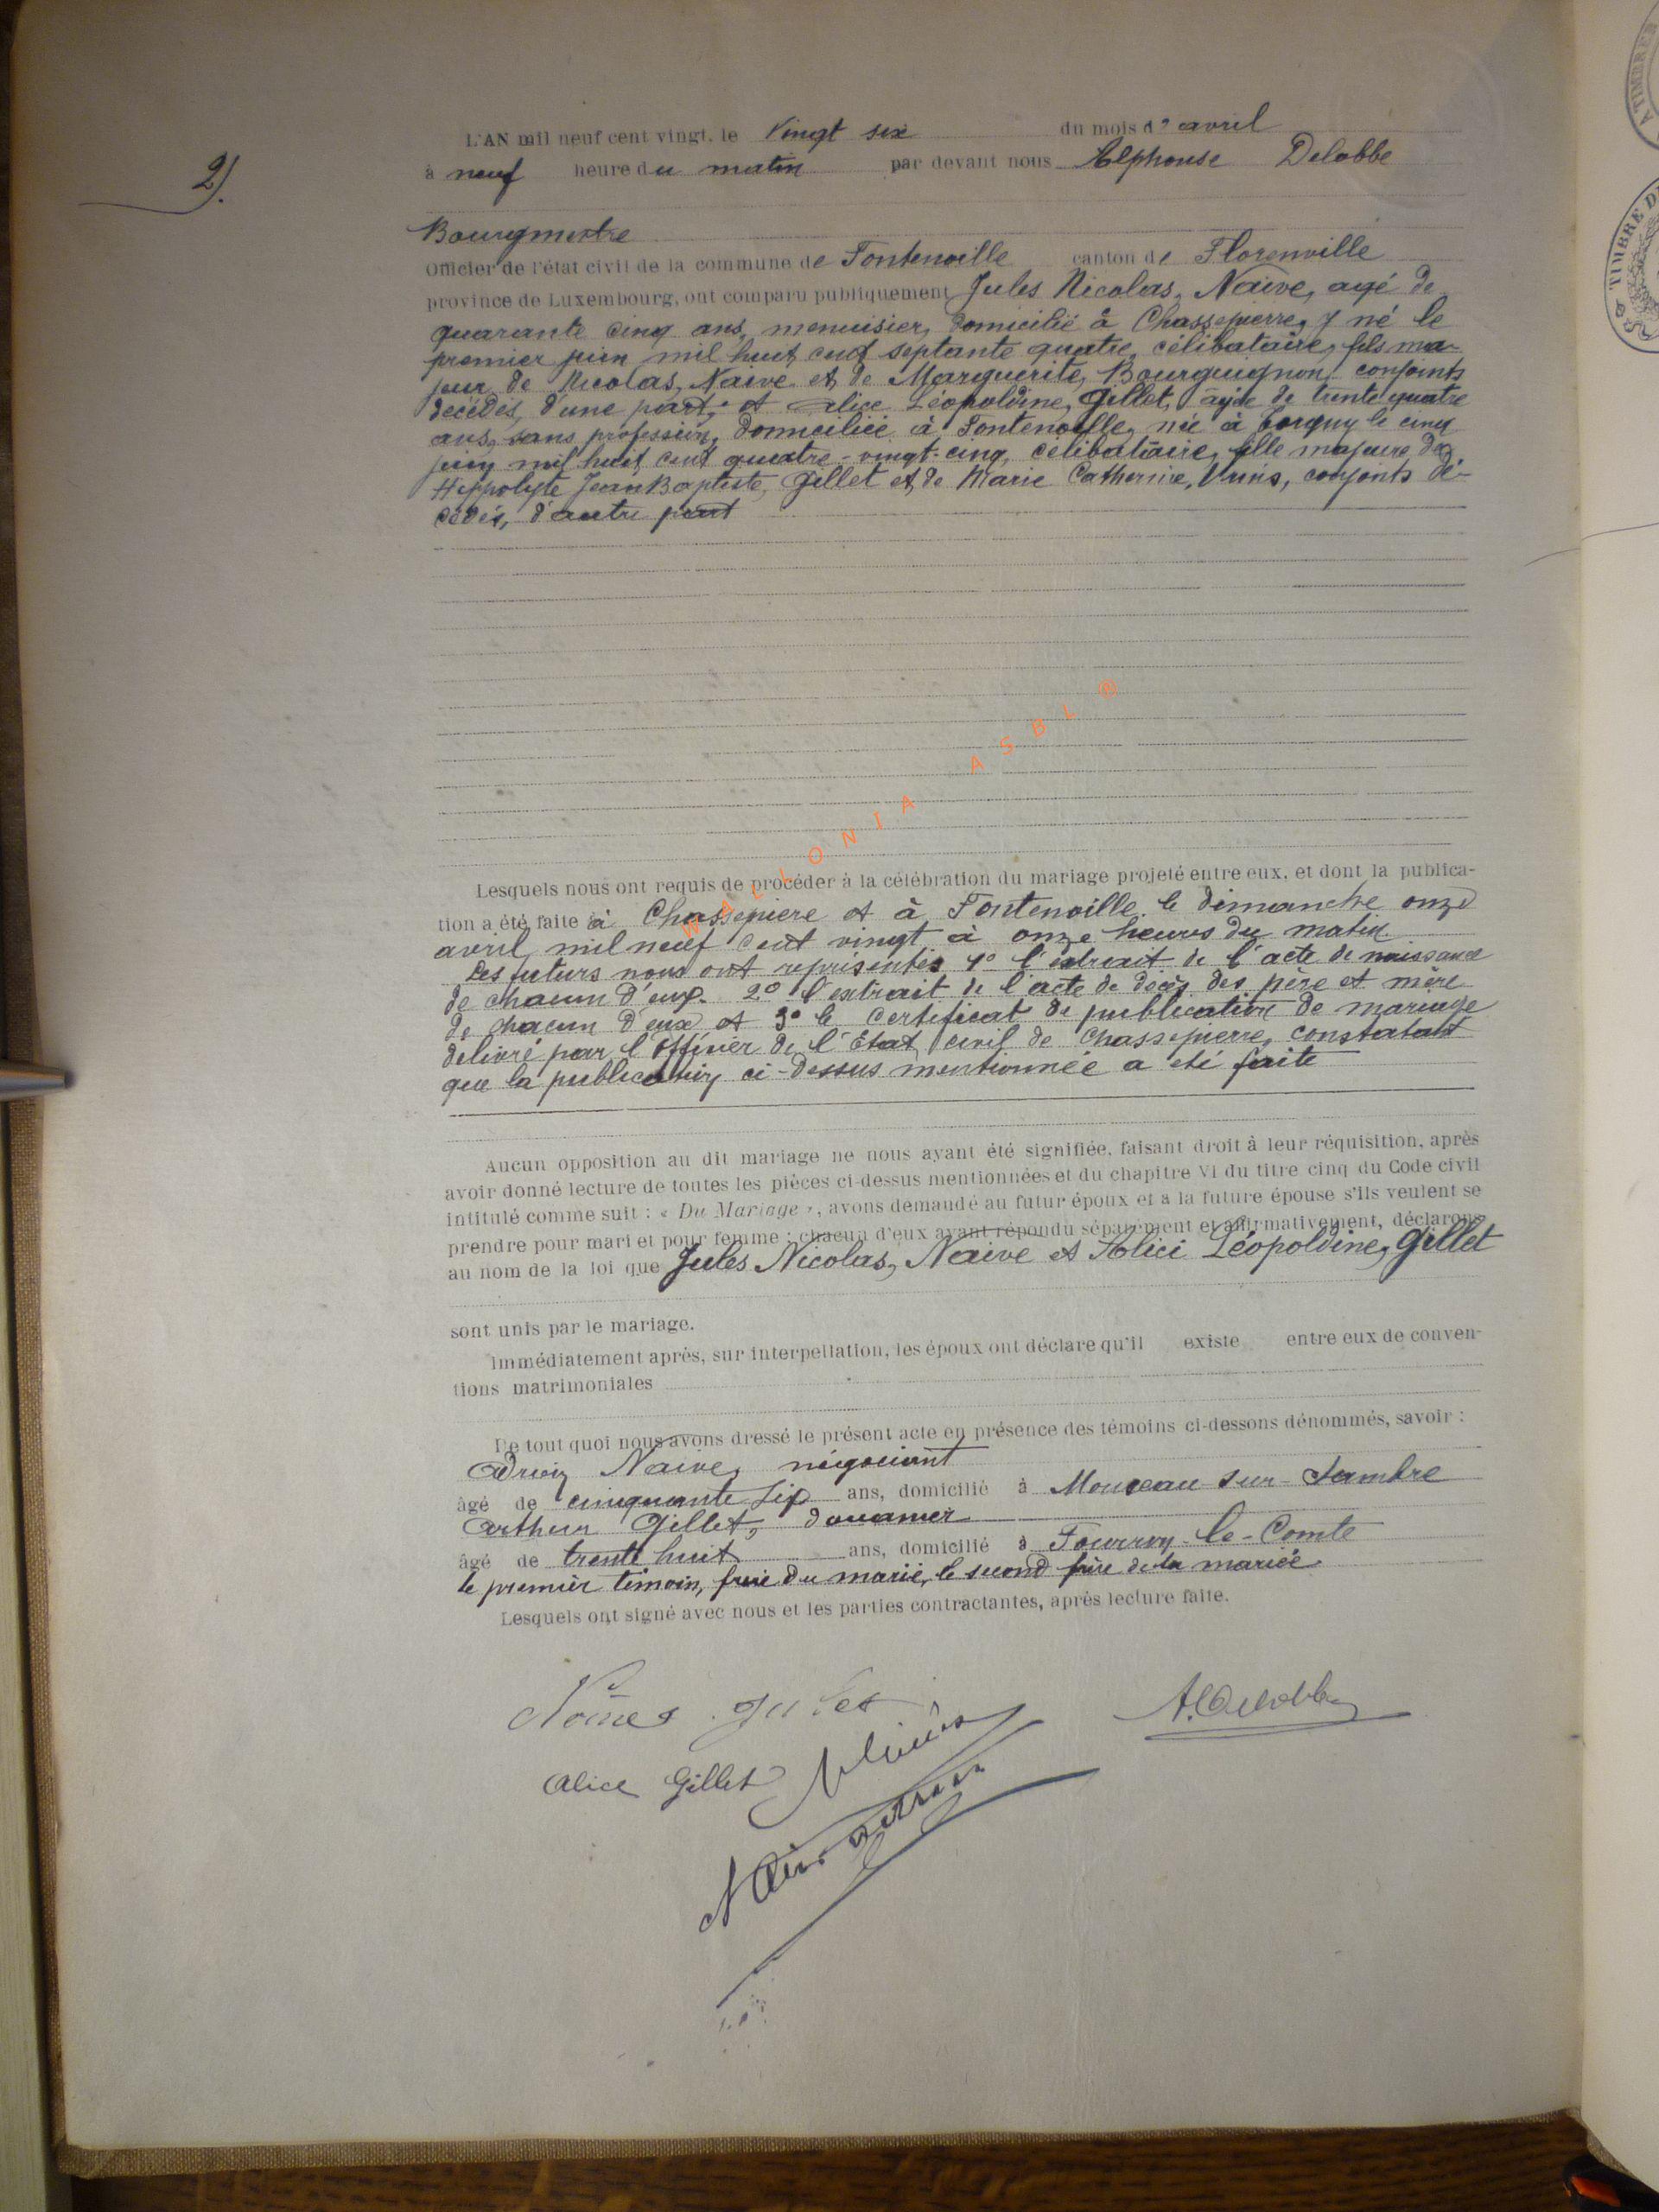 2).
L'AN mil neuf cent vingt, le Vingt six du mois d' avril
à neuf heure du matin par devant nous Alphonse Delobbe
Bourgmestre
Officier de l'état civil de la commune de Fontenoille canton de Florenville
province de Luxembourg, ont comparu publiquement Jules Nicolas, Naive, agé de
quarante cinq ans, menuisier, domicilié à Chassepierre, y né le
premier juin mil huit cent septante quatre, célibataire, fils ma-
jeur de Nicolas, Naive et de Marguerite, Bourguignon, conjoints
décédés, d'une part, et Alice Léopoldine, Gillet, âgée de trente quatre
ans, sans profession, domiciliée à Fontenoille, née à Torgny le cinq
juin mil huit cent quatre-vingt-cinq, célibataire, fille majeure de
Hippolyte Jean Baptiste, Gillet et de Marie Catherine, conjoints dé-
cédés, d'autre part
Lesquels nous ont requis de procéder à la célébration du mariage projeté entre eux, et dont la publica-
tion a été faite à Chassepiere et à Fontenoille le dimanche onze
avril mil neuf cent vingt à onze heures du matin
Les futurs nous ont représentés 1° l'extrait de l'acte de naissance
de chacun d'eux. 2° l'extrait de l'acte de décès des père et mère
de chacun d'eux et 3° le certificat de publication de mariage
delivré par l'Officier de l'Etat civil de Chassepierre, constatant
que la publication ci-dessus mentionnée a été faite
Aucun opposition au dit mariage ne nous ayant été signifiée, faisant droit à leur réquisition, après
avoir donné lecture de toutes les pièces ci-dessus mentionnées et du chapitre VI du titre cinq du Code civil
intitulé comme suit : « Du Mariage », avons demandé au futur époux et a la future épouse s'ils veulent se
prendre pour mari et pour femme : chacun d'eux ayant répondu séparément et affirmativement, déclarons
au nom de la loi que Jules Nicolas, Naive et Alice Léopoldine, Gillet
sont unis par le mariage.
Immédiatement après, sur interpellation, les époux ont déclare qu'il existe entre eux de conven-
tions matrimoniales
De tout quoi nous avons dressé le présent acte en présence des témoins ci-dessons dénommés, savoir :
Naive, négociant
âgé de cinquante six ans, domicilié à Monceau sur-Sambre
Arthur Gillet, douanier
âgé de trente huit ans, domicilié à Fourron-le-Comte
le premier témoin, frère du marié, le second frère de la mariée
Lesquels ont signé avec nous et les parties contractantes, après lecture faite.
Jules
A. Delobbe
Alice Gillet
WALLONIA ASBL ®
TIMBRES
TIMBRE D